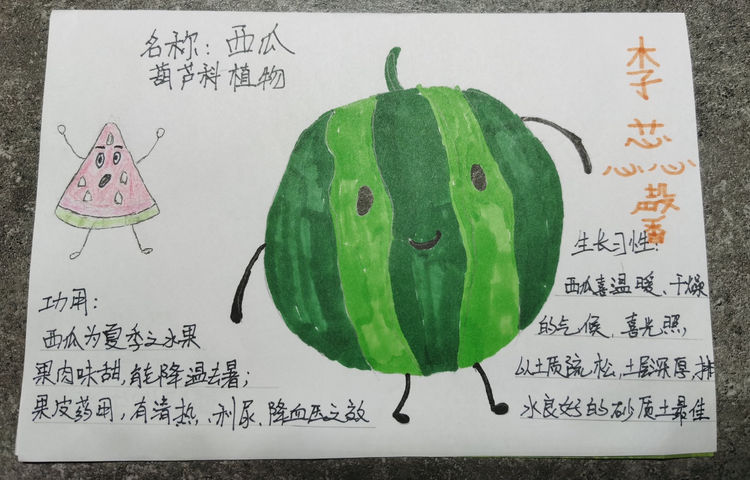 名称：西瓜
葫芦科植物
李
芯
蕊
生长习性：
西瓜喜温暖、干燥
的气候、喜光照，
以土质疏松，土层深厚，排
水良好的砂质土最佳
功用：
西瓜为夏季之水果
果肉味甜，能降温去暑；
果皮药用，有清热、利尿、降血压之效